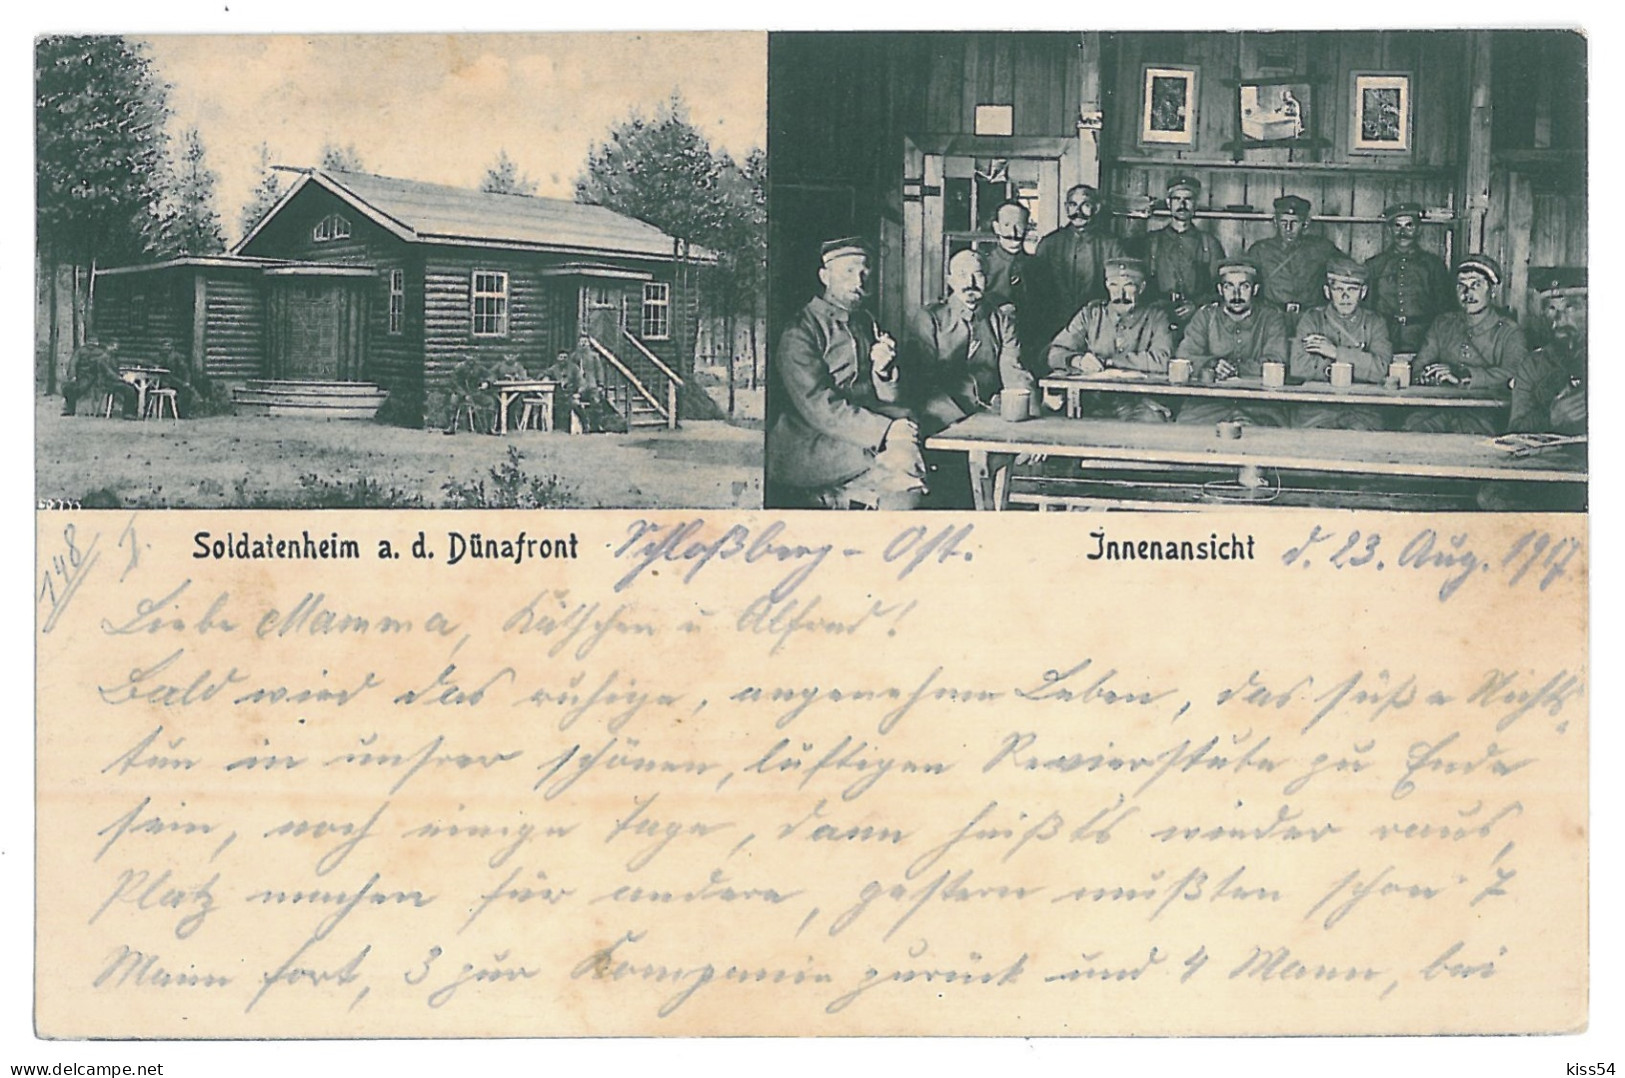 148 I.
Soldatenheim a. d. Dünafront Schloßberg - Ost. Innenansicht d. 23. Aug. 1917
Liebe Mamma, Kätschen u Alfred!
Bald wird das ruhige, angenehme Leben, das süße Nichts-
tun in unsrer schönen, luftigen Revierstube zu Ende
sein, noch einige Tage, dann heißt's wieder raus,
Platz machen für andere, gestern mußten schon 7
Mann fort, 3 zur Kompanie zurück und 4 Mann, bei
delcampe.net
kiss54